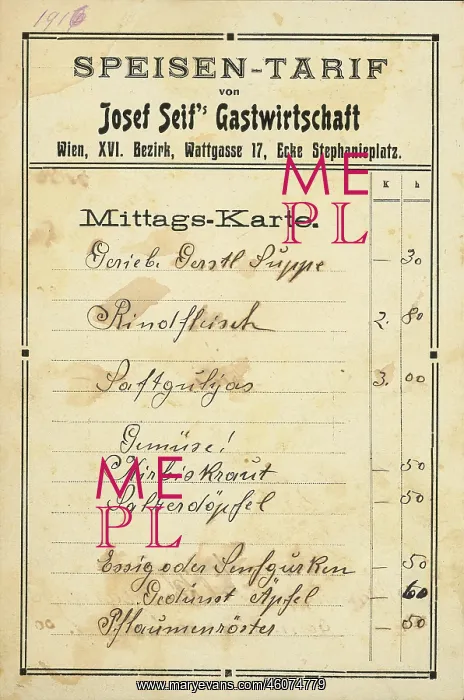 1916
SPEISEN-TARIF
von
Josef Seif's Gastwirtschaft
Wien, XVI. Bezirk, Wattgasse 17, Ecke Stephanieplatz.
K h
Mittags-Karte.
Gerieb. Gerstl Suppe — 30
Rindfleisch 2. 80
Saftgulyas 3. 00
Gemüse!
Kürbiskraut — 50
Salzerdäpfel — 50
Essig oder Senfgurken — 50
Gedünst Äpfel — 60
Pflaumenröster — 50
ME
PL
ME
PL
www.maryevans.com/46074779